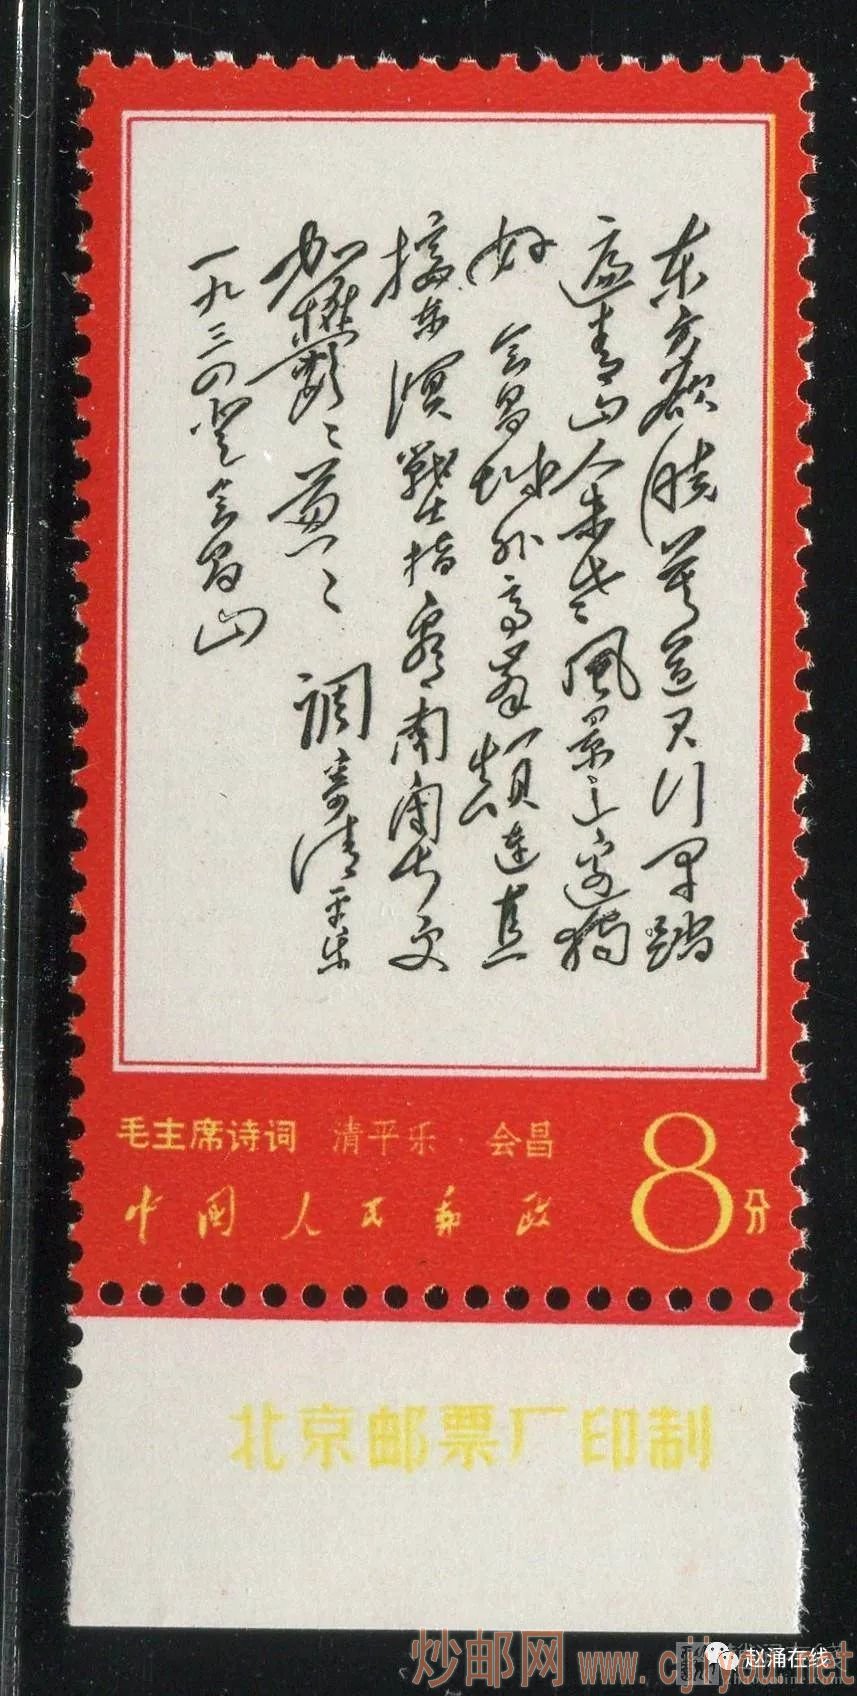 东方欲晓莫道君行早踏
遍青山人未老风景这边独
好 会昌城外高峰颠连直
接东溟戰士指看南粤更
加鬱〻葱〻 調寄清平乐
一九三四登会昌山
毛主席诗词 清平乐·会昌
中国人民邮政
8分
北京邮票厂印制
炒邮网 www.cjiyou.net
赵涌在线